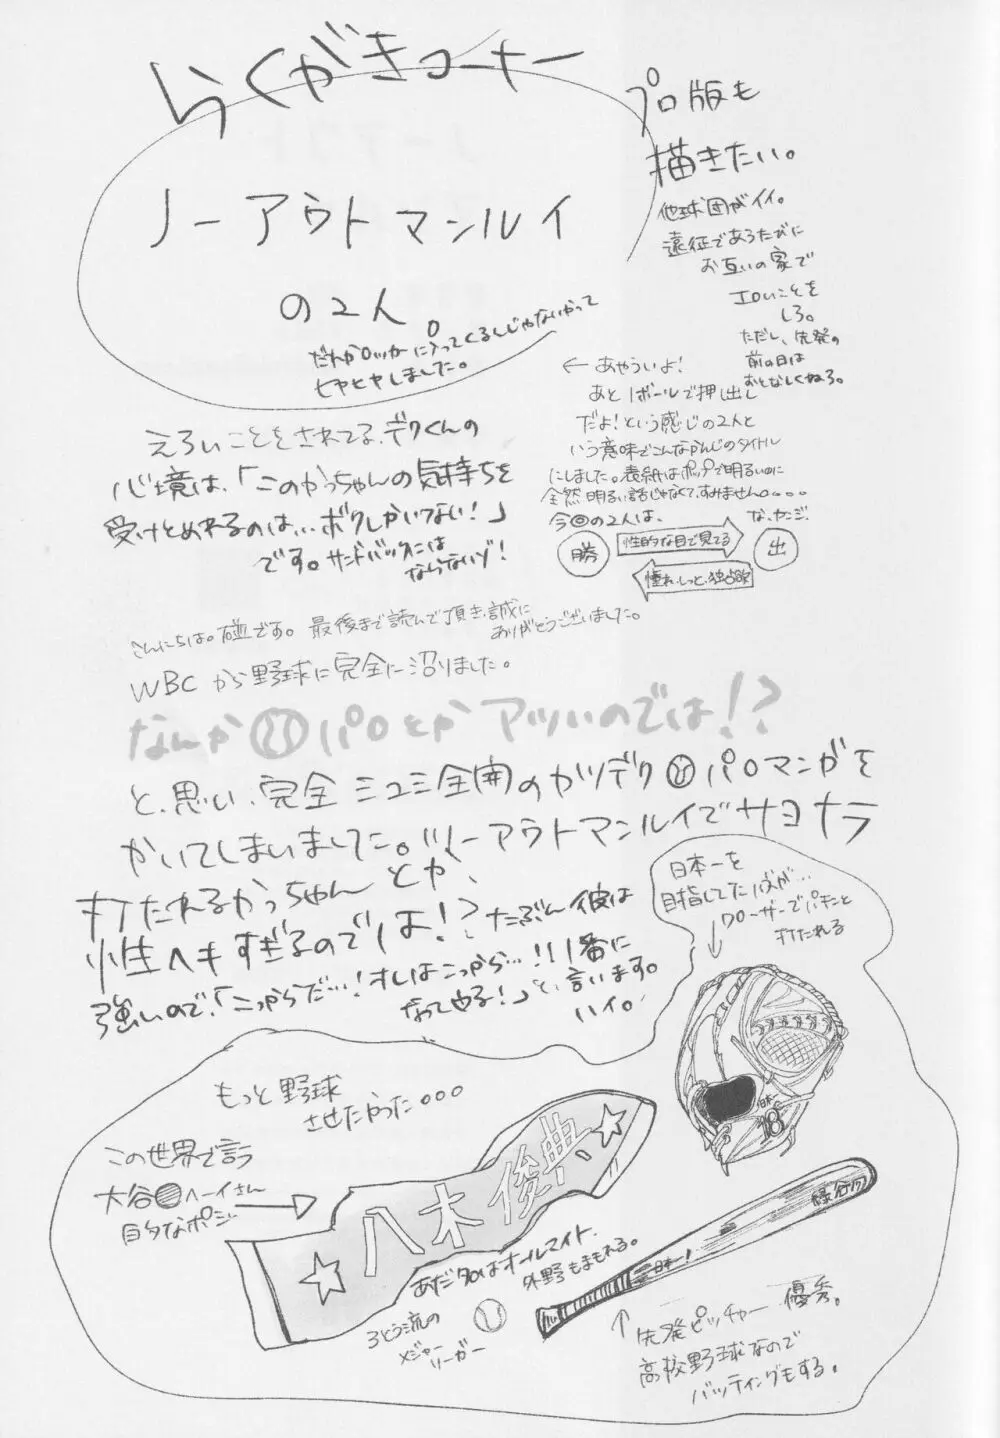 らくがきコーナー
ノーアウトマンルイ
の2人。
だれかロッカーに入ってくるんじゃないかって
ヒヤヒヤしました。
プロ版も
描きたい。
他球団がイイ。
遠征であるたびに
お互いの家で
エロいことを
しろ。
ただし、先発の
前の日は
おとなしくねろ。
← あやういよ!
あと1ボールで押し出し
だよ!という感じの2人と
いう意味でこんなかんじのタイトル
にしました。表紙はポップで明るいのに
全然明るい話じゃなくて、すみません。...
今回の2人は、
な、カンジ。
勝
性的な目で見てる
出
憧れ、しっと、独占欲
えろいことをされてる、デクくんの
心境は、「このかっちゃんの気持ちを
受けとめれるのは...ボクしかいない!」
です。サンドバックには
ならないゾ!
こんにちは。碰です。最後まで読んで頂き、誠に
ありがとうございました。
WBCから野球に完全に沼りました。
なんか パロとか アツいのでは!?
と、思い、完全ミユミ全開のカツデク パロマンガを
かいてしまいました。ノーアウトマンルイでサヨナラ
打たれるかっちゃんとか、
性ヘキすぎるのでは!?たぶん彼は
強いので、「こっからだ...!オレはこっから...!!1番に
なってやる!」と、言います。
ハイ。
日本一を
目指してたハズが...
クローザーでバキンと
打たれる
もっと野球
させたかった。。。
この世界で言う
大谷 ヘーイさん
的なポジ
八木俊典
あだ名はオールマイト。
外野もまもれる。
3とう流の
メジャーリーガー
日本一
18
緑谷
日本一!
先発ピッチャー 優秀。
高校野球なので
バッティングもする。